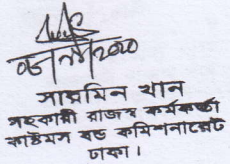 সারমিন খান
সহকারী রাজস্ব কর্মকর্তা
কাষ্টমস বন্ড কমিশনারেট
ঢাকা।